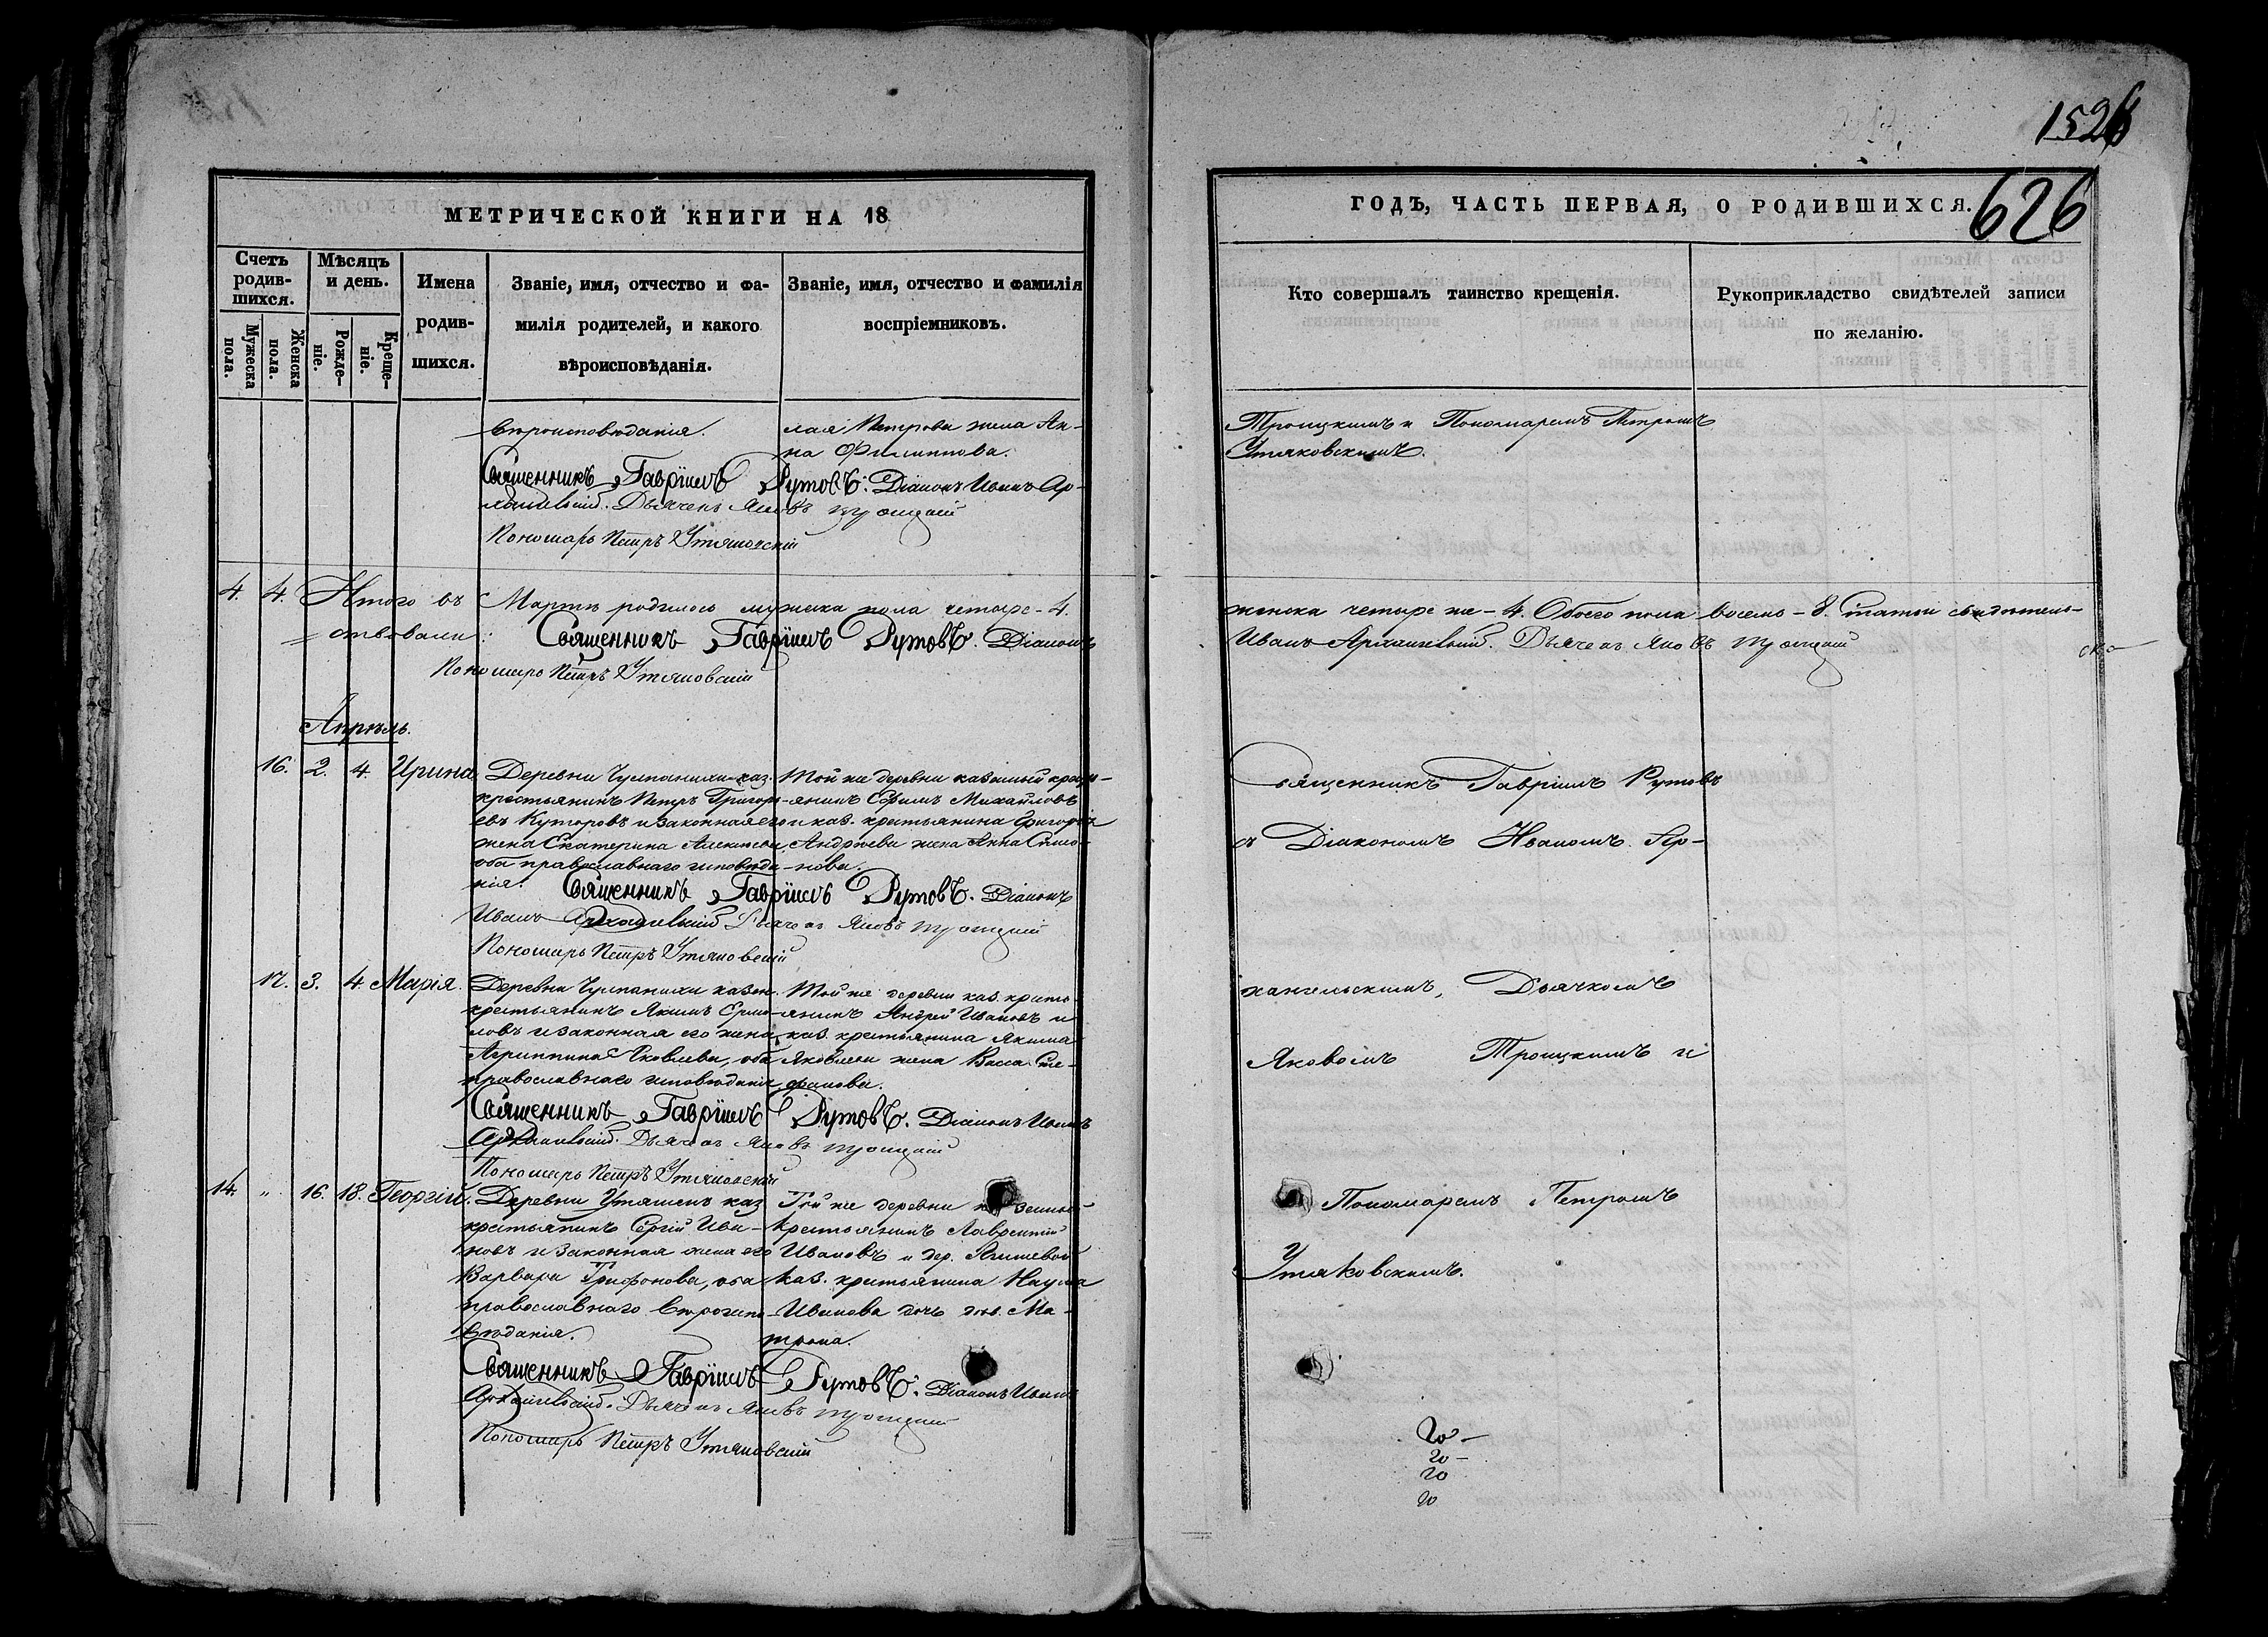 1526
626
МЕТРИЧЕСКОЙ КНИГИ НА 18
Счетъ родив-шихся.
Мужеска пола.
Женска пола.
Мѣсяцъ и день.
Рожде-ніе.
Креще-ніе.
Имена родив-шихся.
Званіе, имя, отчество и фа-
милія родителей, и какого
вѣроисповѣданія.
Званіе, имя, отчество и фамилія
воспріемниковъ.
вѣроисповѣданія.
лая Петрова жена Ан-
на Филиппова.
Священникъ Гавріилъ Рутовъ. Діаконъ Иванъ Ар-
хангельскій. Дьячекъ Яковъ Троицкій
Пономарь Петръ Утяковскій
4. 4. Итого въ Мартѣ родилось мужеска пола четыре - 4.
ствовали: Священникъ Гавріилъ Рутовъ. Діаконъ
Пономарь Петръ Утяковскій
Апрѣль.
16. 2. 4. Ирина
Деревни каз.
крестьянинъ Петръ Григорь-
евъ и законная его
жена Екатерина Алексѣева
оба православнаго исповѣда-
нія.
Той же деревни казенный кресть-
янинъ Ефимъ Михайловъ
и каз. крестьянина Григорія
Андреева жена Анна Симо-
нова.
Священникъ Гавріилъ Рутовъ. Діаконъ
Иванъ Архангельскій Дьячекъ Яковъ Троицкій
Пономарь Петръ Утяковскій
17. 3. 4. Марія.
Деревни казен.
крестьянинъ Якимъ Ермо-
ловъ и законная его жена
Агриппина Яковлева, оба
православнаго исповѣданія
Той же деревни каз. кресть-
янинъ Андрей Ивановъ и
каз. крестьянина Якима
Яковлева жена Васса Сте-
фанова.
Священникъ Гавріилъ Рутовъ. Діаконъ Иванъ
Архангельскій. Дьячекъ Яковъ Троицкій
Пономарь Петръ Утяковскій
14. " 16. 18. Георгій.
Деревни каз
крестьянинъ Сергій Ива-
новъ и законная жена его
Варвара Трифонова, оба
православнаго вѣроиспо-
вѣданія.
Той же деревни казенный
крестьянинъ Лаврентій
Ивановъ и дер.
каз. крестьянина Наума
Иванова дочь дѣв. Ма-
трона.
Священникъ Гавріилъ Рутовъ. Діаконъ Иванъ
Архангельскій. Дьячекъ Яковъ Троицкій
Пономарь Петръ Утяковскій
ГОДЪ, ЧАСТЬ ПЕРВАЯ, О РОДИВШИХСЯ.
Кто совершалъ таинство крещенія.
Рукоприкладство свидѣтелей записи
по желанію.
Троицкимъ и Пономаремъ Петромъ
Утяковскимъ.
женска четыре же - 4. Обоего пола восемь - 8. Статьи свидѣтель-
Иванъ Архангельскій. Дьячекъ Яковъ Троицкій
Священникъ Гавріилъ Рутовъ
съ Діакономъ Иваномъ Ар-
хангельскимъ, Дьячкомъ
Яковомъ Троицкимъ и
Пономаремъ Петромъ
Утяковскимъ.
20 -
20 -
20
20